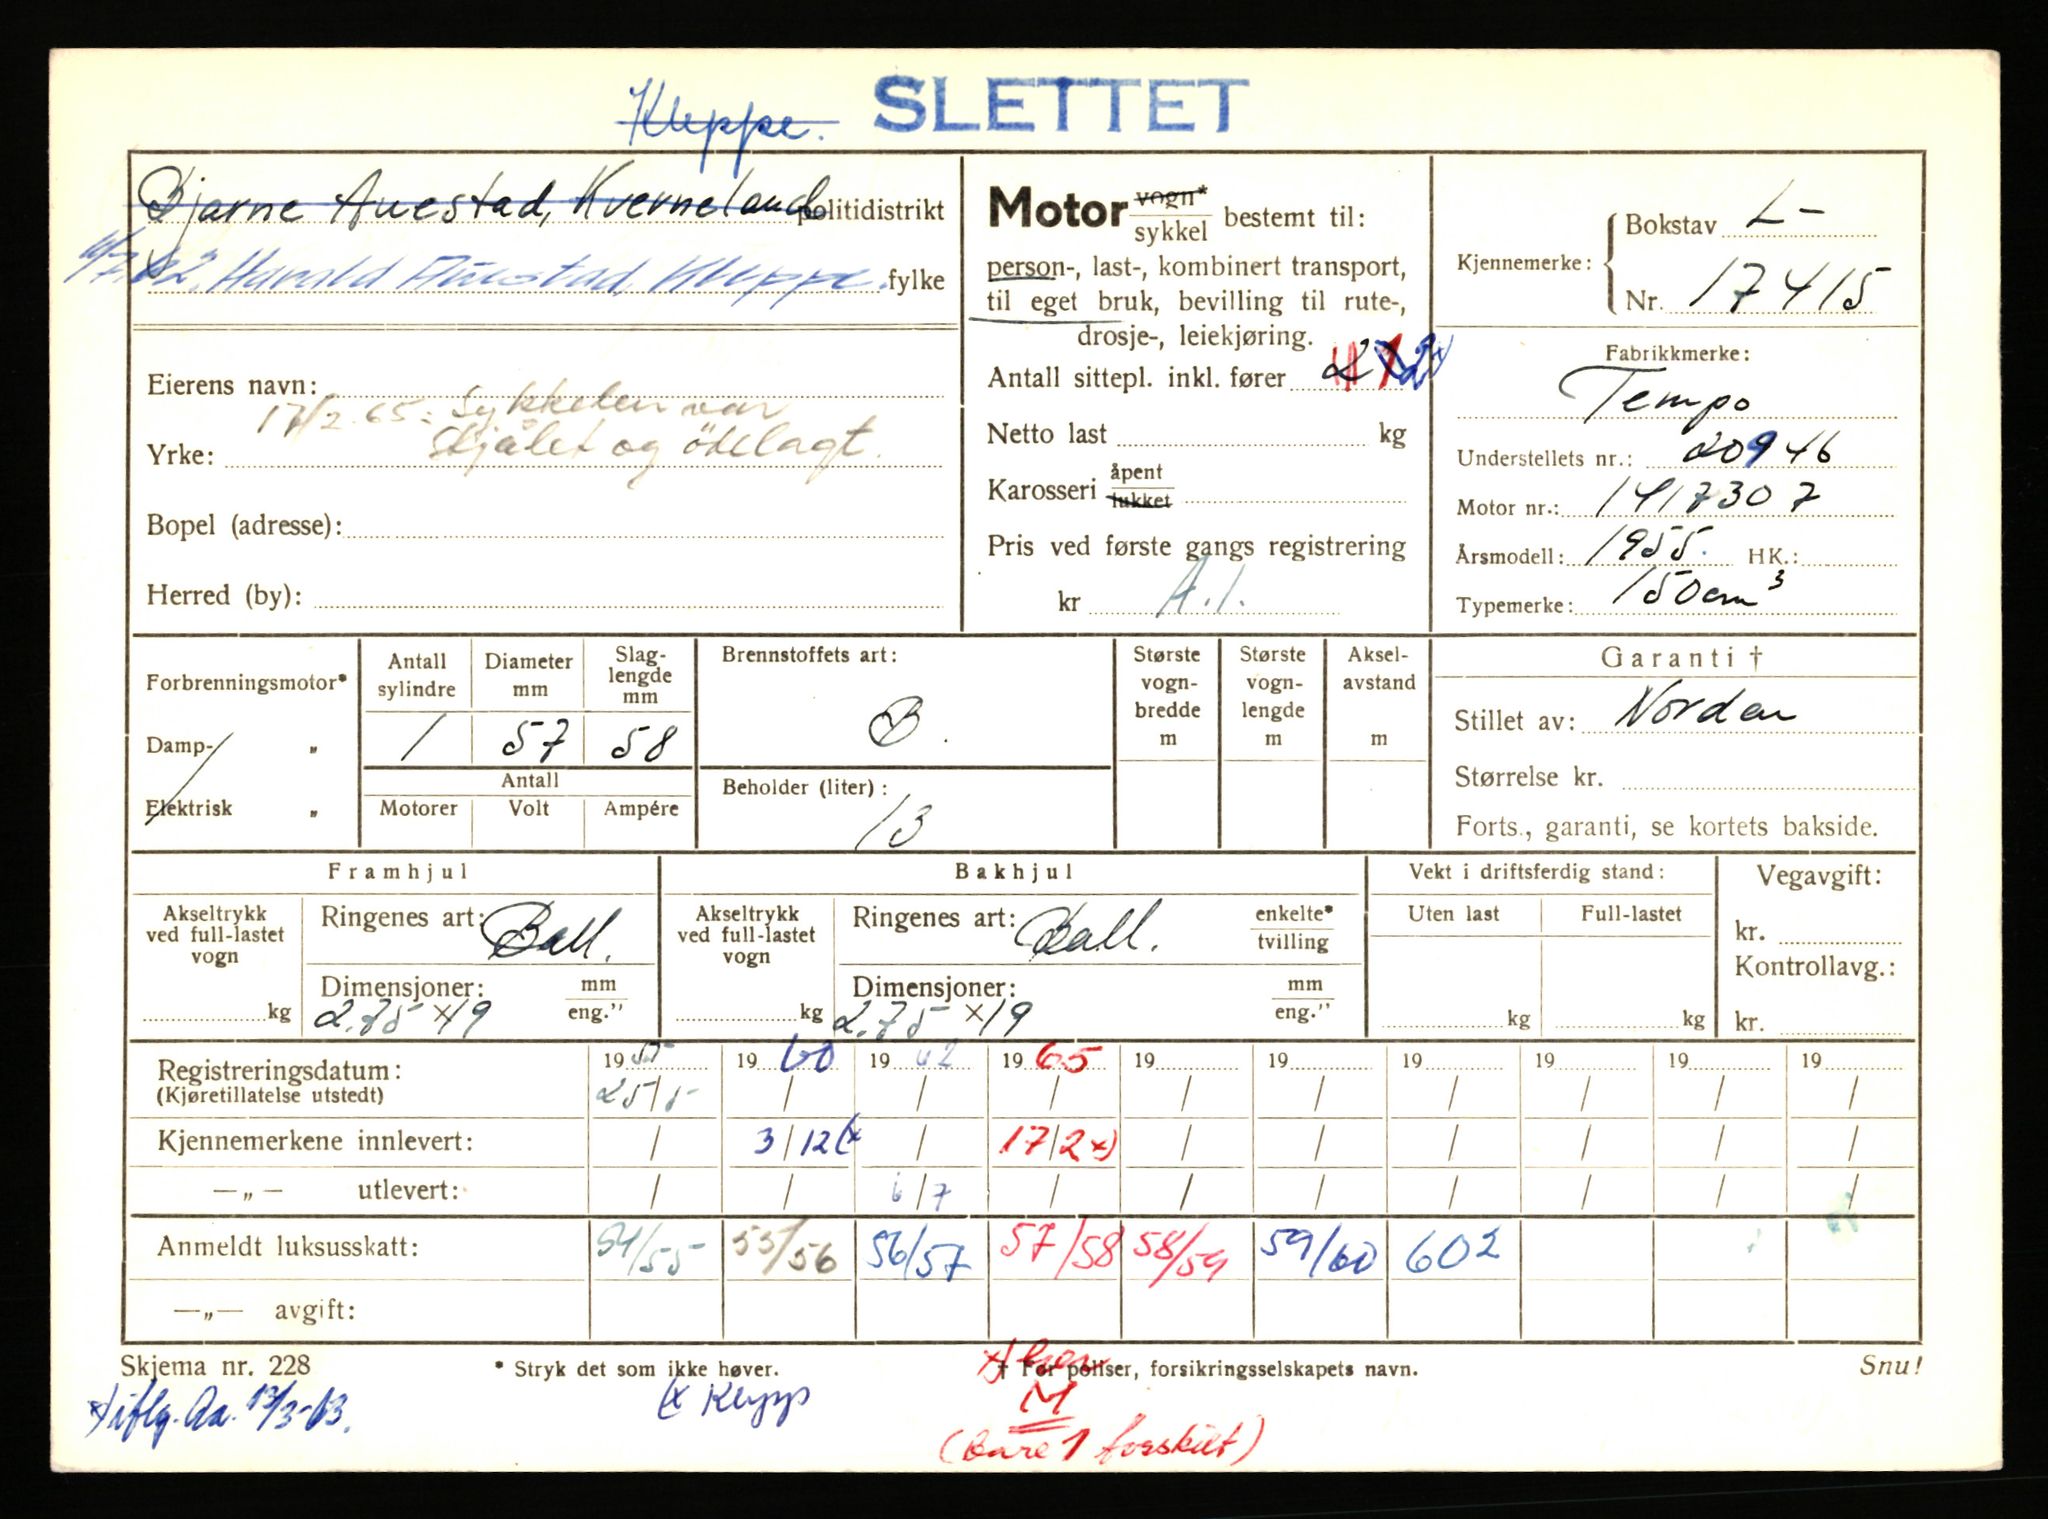 Kleppe. SLETTET
Bjarne Auestad, Kverneland politidistrikt
6/7.62. Harald Auestad, Kleppe. fylke
Eierens navn:
17/2.65: Sykkelen var
stjålet og ödelagt.
Yrke:
Bopel (adresse):
Herred (by):
Motor vogn*/sykkel bestemt til:
person-, last-, kombinert transport,
til eget bruk, bevilling til rute-,
drosje-, leiekjøring.
Antall sittepl. inkl. fører 2
Netto last kg
Karosseri åpent/lukket
Pris ved første gangs registrering
kr A.1.
Kjennemerke: Bokstav L-
Nr. 17415
Fabrikkmerke:
Tempo
Understellets nr.: 20946
Motor nr.: 1417307
Årsmodell: 1955. HK.:
Typemerke: 150cm³
Forbrenningsmotor*
Damp- „
Elektrisk „
Antall sylindre Diameter mm Slaglengde mm
1 57 58
Antall
Motorer Volt Ampére
Brennstoffets art:
B.
Beholder (liter):
13
Største vogn-bredde m
Største vogn-lengde m
Aksel-avstand m
Garanti †
Stillet av: Norden
Størrelse kr.
Forts., garanti, se kortets bakside.
Framhjul
Akseltrykk ved full-lastet vogn kg
Ringenes art: Ball.
Dimensjoner: mm/eng.”
2.75 x 19
Bakhjul
Akseltrykk ved full-lastet vogn kg
Ringenes art: Ball. enkelte*/tvilling
Dimensjoner: mm/eng.”
2.75 x 19
Vekt i driftsferdig stand:
Uten last Full-lastet
kg kg
Vegavgift:
kr.
Kontrollavg.:
kr.
Registreringsdatum: 1955 1960 1962 1965 19 19 19 19 19 19
(Kjøretillatelse utstedt) 25/5 / / / / / / / / /
Kjennemerkene innlevert: / 3/12(x / 17/2x) / / / / / /
—„— utlevert: / / 6/7 / / / / / / /
Anmeldt luksusskatt: 54/55 55/56 56/57 57/58 58/59 59/60 602
—„— avgift:
Skjema nr. 228 * Stryk det som ikke høver. † Før poliser, forsikringsselskapets navn. Snu!
x) iflg. Aa. 13/3-63.
(x Klepp
M
(bare 1 forskilt)